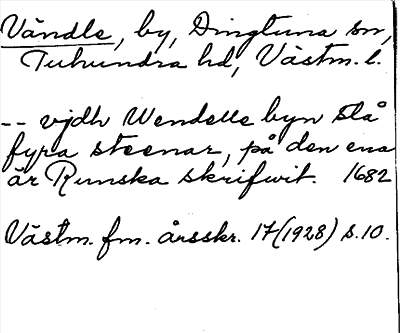 Vändle, by, Dingtuna sn,
Tuhundra hd, Västm. l.
-- vjdh Wendelle byn stå
fyra steenar, på den ena
är Runska skrifwit. 1682
Västm. fm. årsskr. 17(1928) s.10.